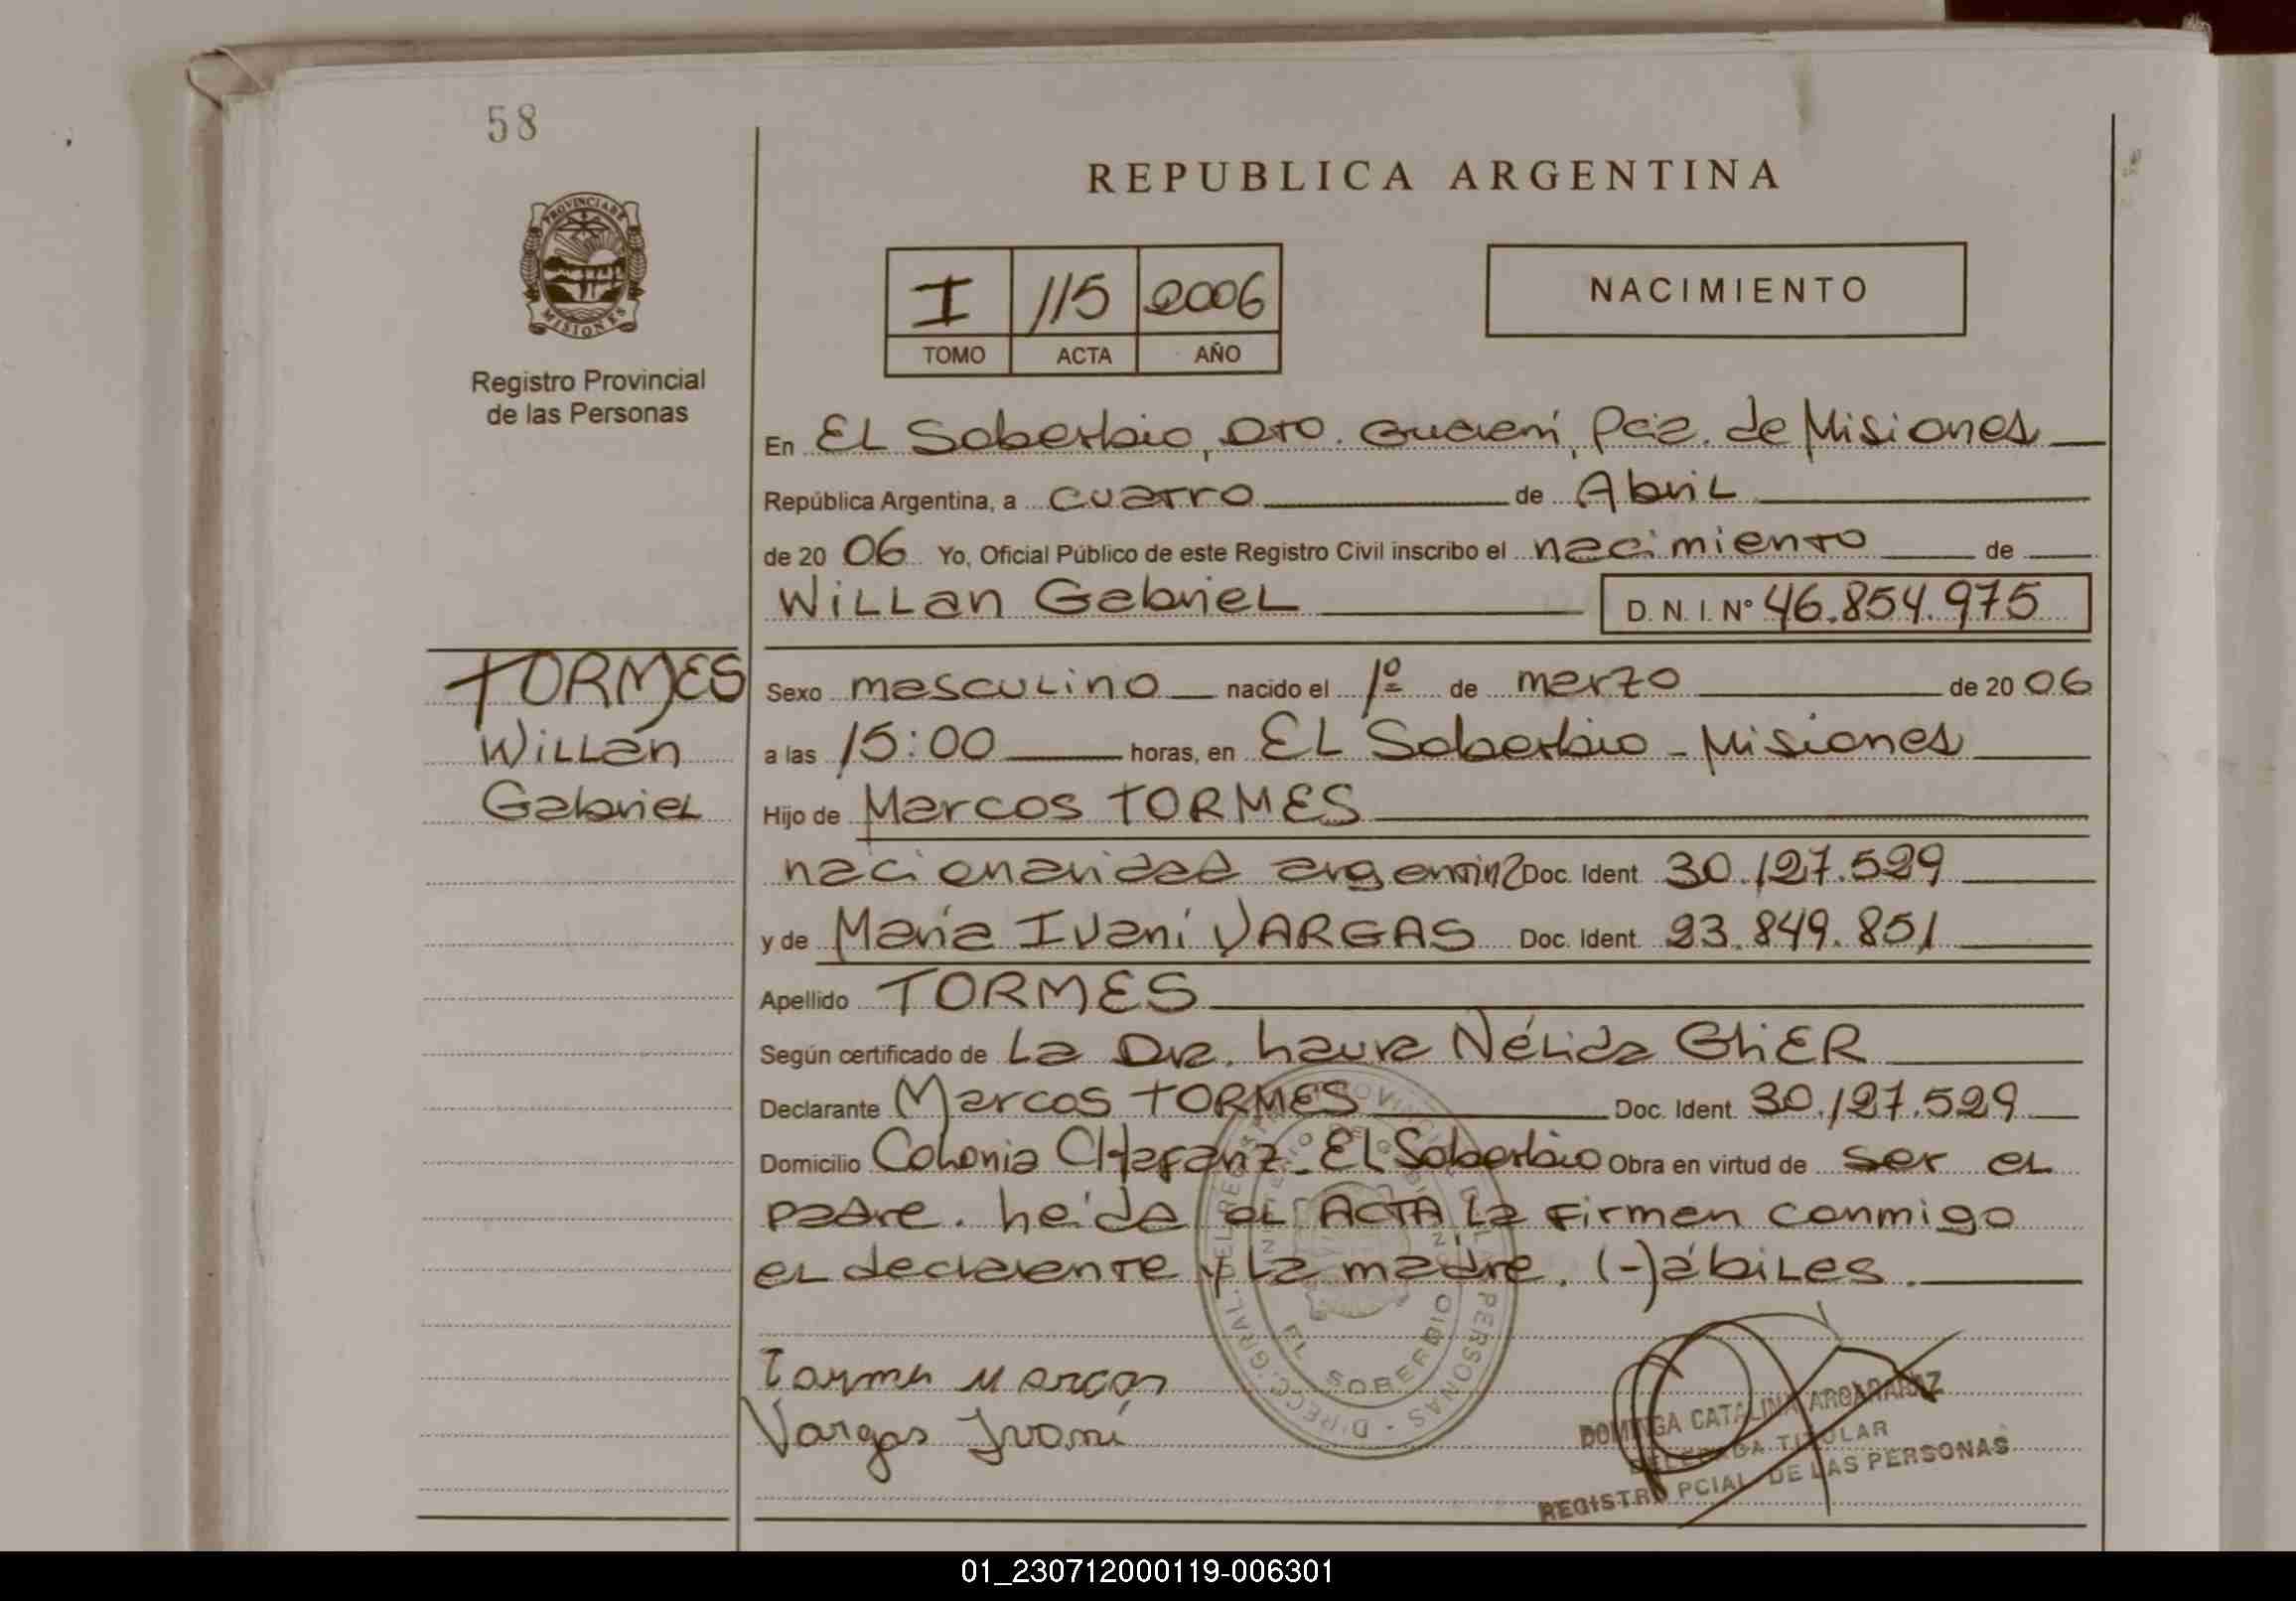 58
REPUBLICA ARGENTINA
PROVINCIA DE
MISIONES
Registro Provincial
de las Personas
I 115 2006
TOMO ACTA AÑO
NACIMIENTO
En EL Soberbio, Dto. Guaraní, Pcia. de Misiones
República Argentina, a cuatro de Abril
de 2006 Yo, Oficial Público de este Registro Civil inscribo el nacimiento de
Willan Gabriel D. N. I. Nº 46.854.975
TORMES
Willan
Gabriel
Sexo masculino nacido el 1º de marzo de 2006
a las 15:00 horas, en EL Soberbio - Misiones
Hijo de Marcos TORMES
nacionalidad argentina Doc. Ident. 30.127.529
y de María Ivani VARGAS Doc. Ident. 23.849.851
Apellido TORMES
Según certificado de La Dra. Laura Nélida GLIER
Declarante Marcos TORMES Doc. Ident. 30.127.529
Domicilio Colonia CHafariz - El Soberbio Obra en virtud de ser el
padre. Leída el ACTA la firman conmigo
el declarante y la madre. (-)ábiles.
Tormes Marcos
Vargas Ivani
EL SOBERBIO
DOMINGA CATALINA ARGAÑARAZ
DELEGADA TITULAR
REGISTRO PCIAL. DE LAS PERSONAS
01_230712000119-006301